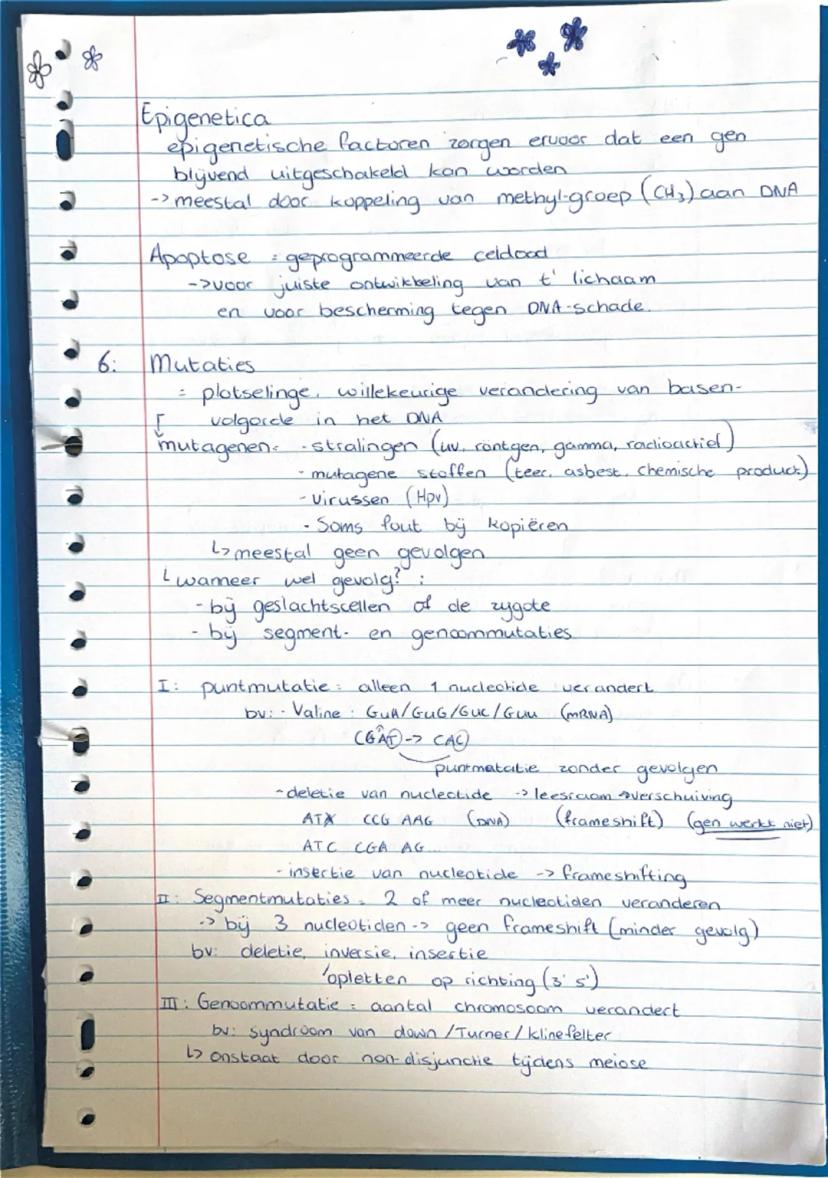 Epigenetica
epigenetische factoren zorgen ervoor dat een gen
blijvend uitgeschakeld kan worden
-> meestal door koppeling van methyl-groep (CH₃) aan DNA
Apoptose = geprogrammeerde celdood
-> voor juiste ontwikkeling van t' lichaam
en voor bescherming tegen DNA-schade.
6: Mutaties
= plotselinge, willekeurige verandering van basen-
volgorde in het DNA
mutagenen: - stralingen (uv, röntgen, gamma, radioactief)
- mutagene stoffen (teer, asbest, chemische product)
- virussen (Hpv)
- Soms fout bij kopiëren
↳ meestal geen gevolgen
↳ wanneer wel gevolg? :
- bij geslachtscellen of de zygote
- bij segment- en genoommutaties
I: puntmutatie = alleen 1 nucleotide verandert
bv: - Valine : GUA/GUG/GUC/GUU (mRNA)
CAT -> CAC
puntmutatie zonder gevolgen
- deletie van nucleotide -> leesraam verschuiving
ATX CCG AAG (DNA) (frameshift) (gen werkt niet)
ATC CGA AG...
- insertie van nucleotide -> frameshifting
II: Segmentmutaties = 2 of meer nucleotiden veranderen
-> bij 3 nucleotiden -> geen frameshift (minder gevolg)
bv: deletie, inversie, insertie
opletten op richting (3' 5')
III: Genoommutatie = aantal chromosoom verandert
bv: syndroom van down / Turner / klinefelter
↳ onstaat door non-disjunctie tijdens meiose